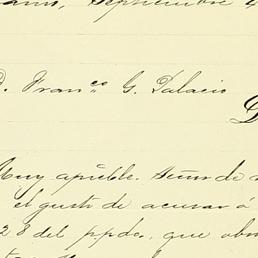 Septiembre 4
D. Franco G. Palacio
Muy apreble. Señor de
el gusto de acusar á
28 del p.pdo. que